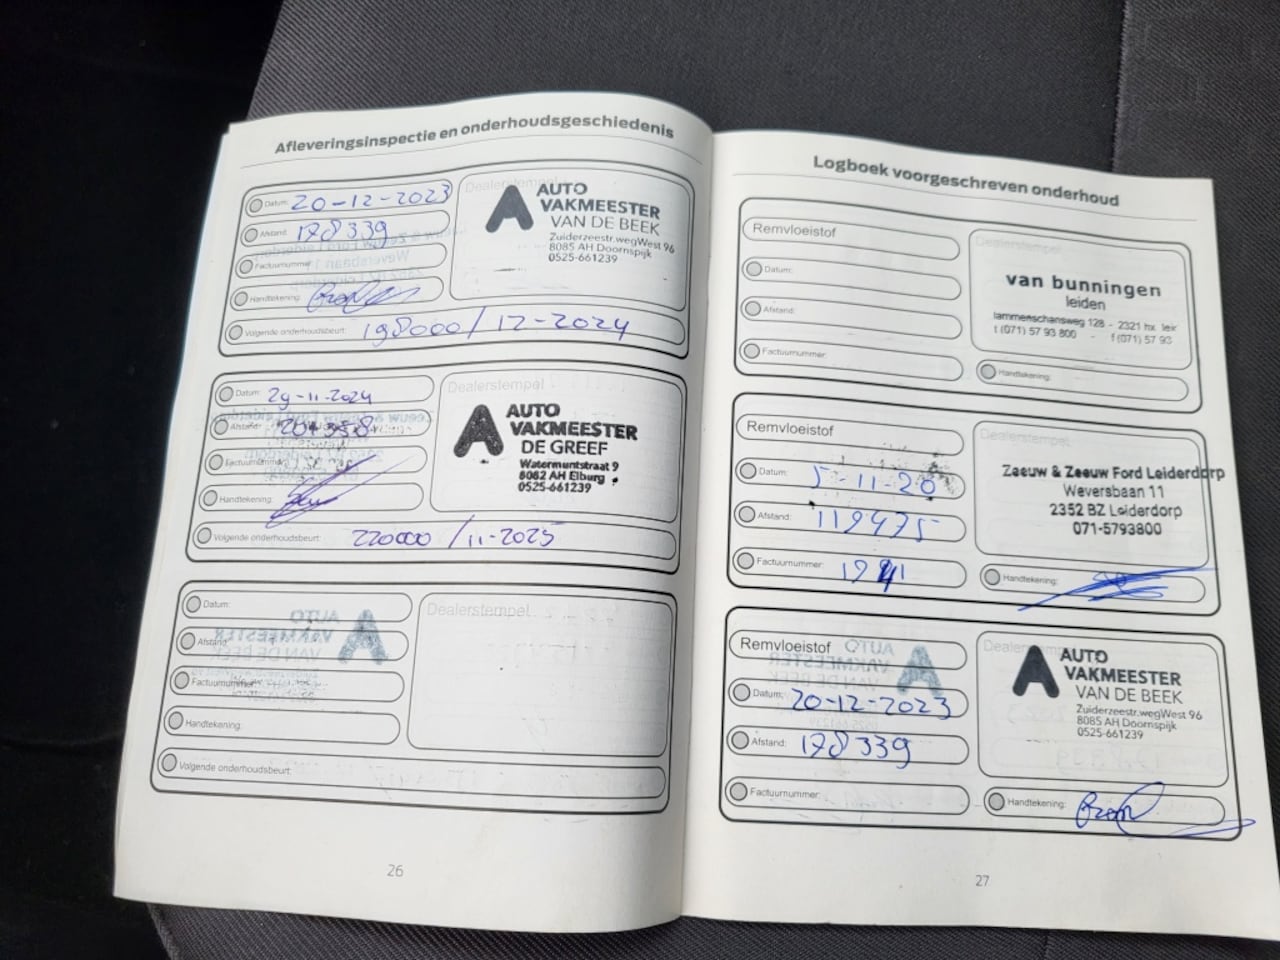 Afleveringsinspectie en onderhoudsgeschiedenis
Datum: 20-12-2023
Afstand: 178339
Factuurnummer:
Handtekening:
Volgende onderhoudsbeurt: 198000 / 12-2024
Dealerstempel
AUTO
VAKMEESTER
VAN DE BEEK
Zuiderzeestr.wegWest 96
8085 AH Doornspijk
0525-661239
Datum: 29-11-2024
Afstand:
Factuurnummer:
Handtekening:
Volgende onderhoudsbeurt: 220000 / 11-2025
Dealerstempel
AUTO
VAKMEESTER
DE GREEF
Watermuntstraat 9
8082 AH Elburg
0525-661239
Datum:
Afstand:
Factuurnummer:
Handtekening:
Volgende onderhoudsbeurt:
Dealerstempel
26
Logboek voorgeschreven onderhoud
Remvloeistof
Datum:
Afstand:
Factuurnummer:
Dealerstempel
van bunningen
leiden
lammenschansweg 128 - 2321 hx leir
t (071) 57 93 800 - f (071) 57 93
Handtekening:
Remvloeistof
Datum: 5-11-20
Afstand: 119475
Factuurnummer: 1941
Dealerstempel
Zeeuw & Zeeuw Ford Leiderdorp
Weversbaan 11
2352 BZ Leiderdorp
071-5793800
Handtekening:
Remvloeistof
Datum: 20-12-2023
Afstand: 178339
Factuurnummer:
Dealerstempel
AUTO
VAKMEESTER
VAN DE BEEK
Zuiderzeestr.wegWest 96
8085 AH Doornspijk
0525-661239
Handtekening:
27